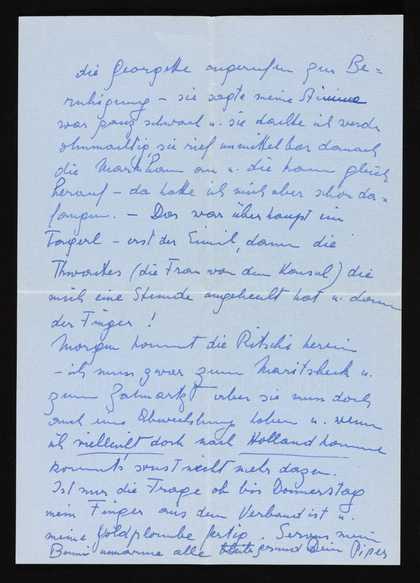 die Georgette angerufen zur Be=
ruhigung – sie sagte meine Stimme
war ganz schwach u. sie dachte ich werde
ohnmächtig, sie rief unmittelbar danach
die an u. die kam gleich
herauf – da hatte ich mich aber schon da=
fangen. – Das war überhaupt ein
Tagerl – erst der Emil, dann die
Thwaites (die Frau von dem Konsul) die
mich eine Stunde angeheult hat u. dann
der Finger!
Morgen kommt die Ritschi herein
– ich muss zwar zum Maritschek u.
zum Zahnarzt aber sie muss doch
auch eine Abwechslung haben u. wenn
ich vielleicht doch nach Holland komme
kommt's sonst nicht mehr dazu.
Ist nur die Frage ob bis Donnerstag
mein Finger aus dem Verband ist u.
meine Goldplombe fertig. Servus mein
umarme alle Dein Piper